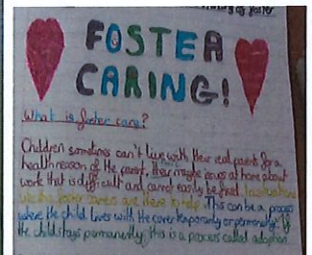 FOSTER
CARING!
What is foster care?
Children sometimes can't live with their real parents for a
health reason of the parent, there maybe issues at home about
work that is difficult and cannot easily be fixed.
like the foster carers are there to help. This can be a process
where the child lives with the carer temporarily or permanently. If
the child stays permanently, this is a process called adoption.